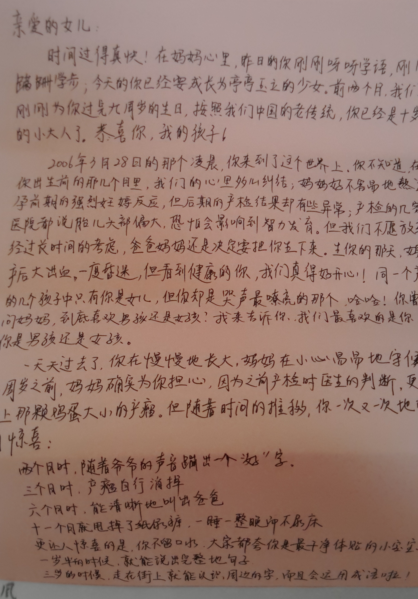 亲爱的女儿:
时间过得真快!在妈妈心里,昨日的你刚刚呀呀学语,刚
蹒跚学步;今天的你已经要成长为亭亭玉立的少女。前两个月,我们
刚刚为你过完九周岁的生日,按照我们中国的老传统,你已经是十岁
的小大人了。恭喜你,我的孩子!
2006年3月28日的那个凌晨,你来到了这个世界上。你不知道,在
你出生前的那几个月里,我们的心里好纠结,妈妈好不容易地
孕前期的强烈妊娠反应,但后期的产检结果却有些异常;产检的几
医院都说胎儿头部偏大,恐怕会影响到智力发育。但我们不愿放
经过长时间的考虑,爸爸妈妈还是决定要把你生下来。生你的那天,妈
产后大出血。一度昏迷,但看到健康的你,我们真得好开心!同一个
的几个孩子中只有你是女儿,但你却是哭声最嘹亮的那个,哈哈!你
问妈妈,到底喜欢男孩还是女孩?我来告诉你,我们最喜欢的是你
你是男孩还是女孩。
一天天过去了,你在慢慢地长大,妈妈在小心翼翼地守候
周岁之前,妈妈确实为你担心,因为之前产检时医生的判断,更
上那颗鸡蛋大小的产瘤。但随着时间的推移,你一次又一次地
惊喜:
两个月时,随着爷爷的声音蹦出一个"好"字。
三个月时,产瘤自行消掉
六个月时,能清晰地叫出爸爸
十一个月就甩掉了纸尿裤,一睡一整晚却不尿床
更让人惊喜的是,你不留口水,大家都夸你是最干净体贴的小宝宝
一岁半的时候,就能说出完整地句子
三岁的时候,走在街上就能认识周边的字,而且会运用成语啦!